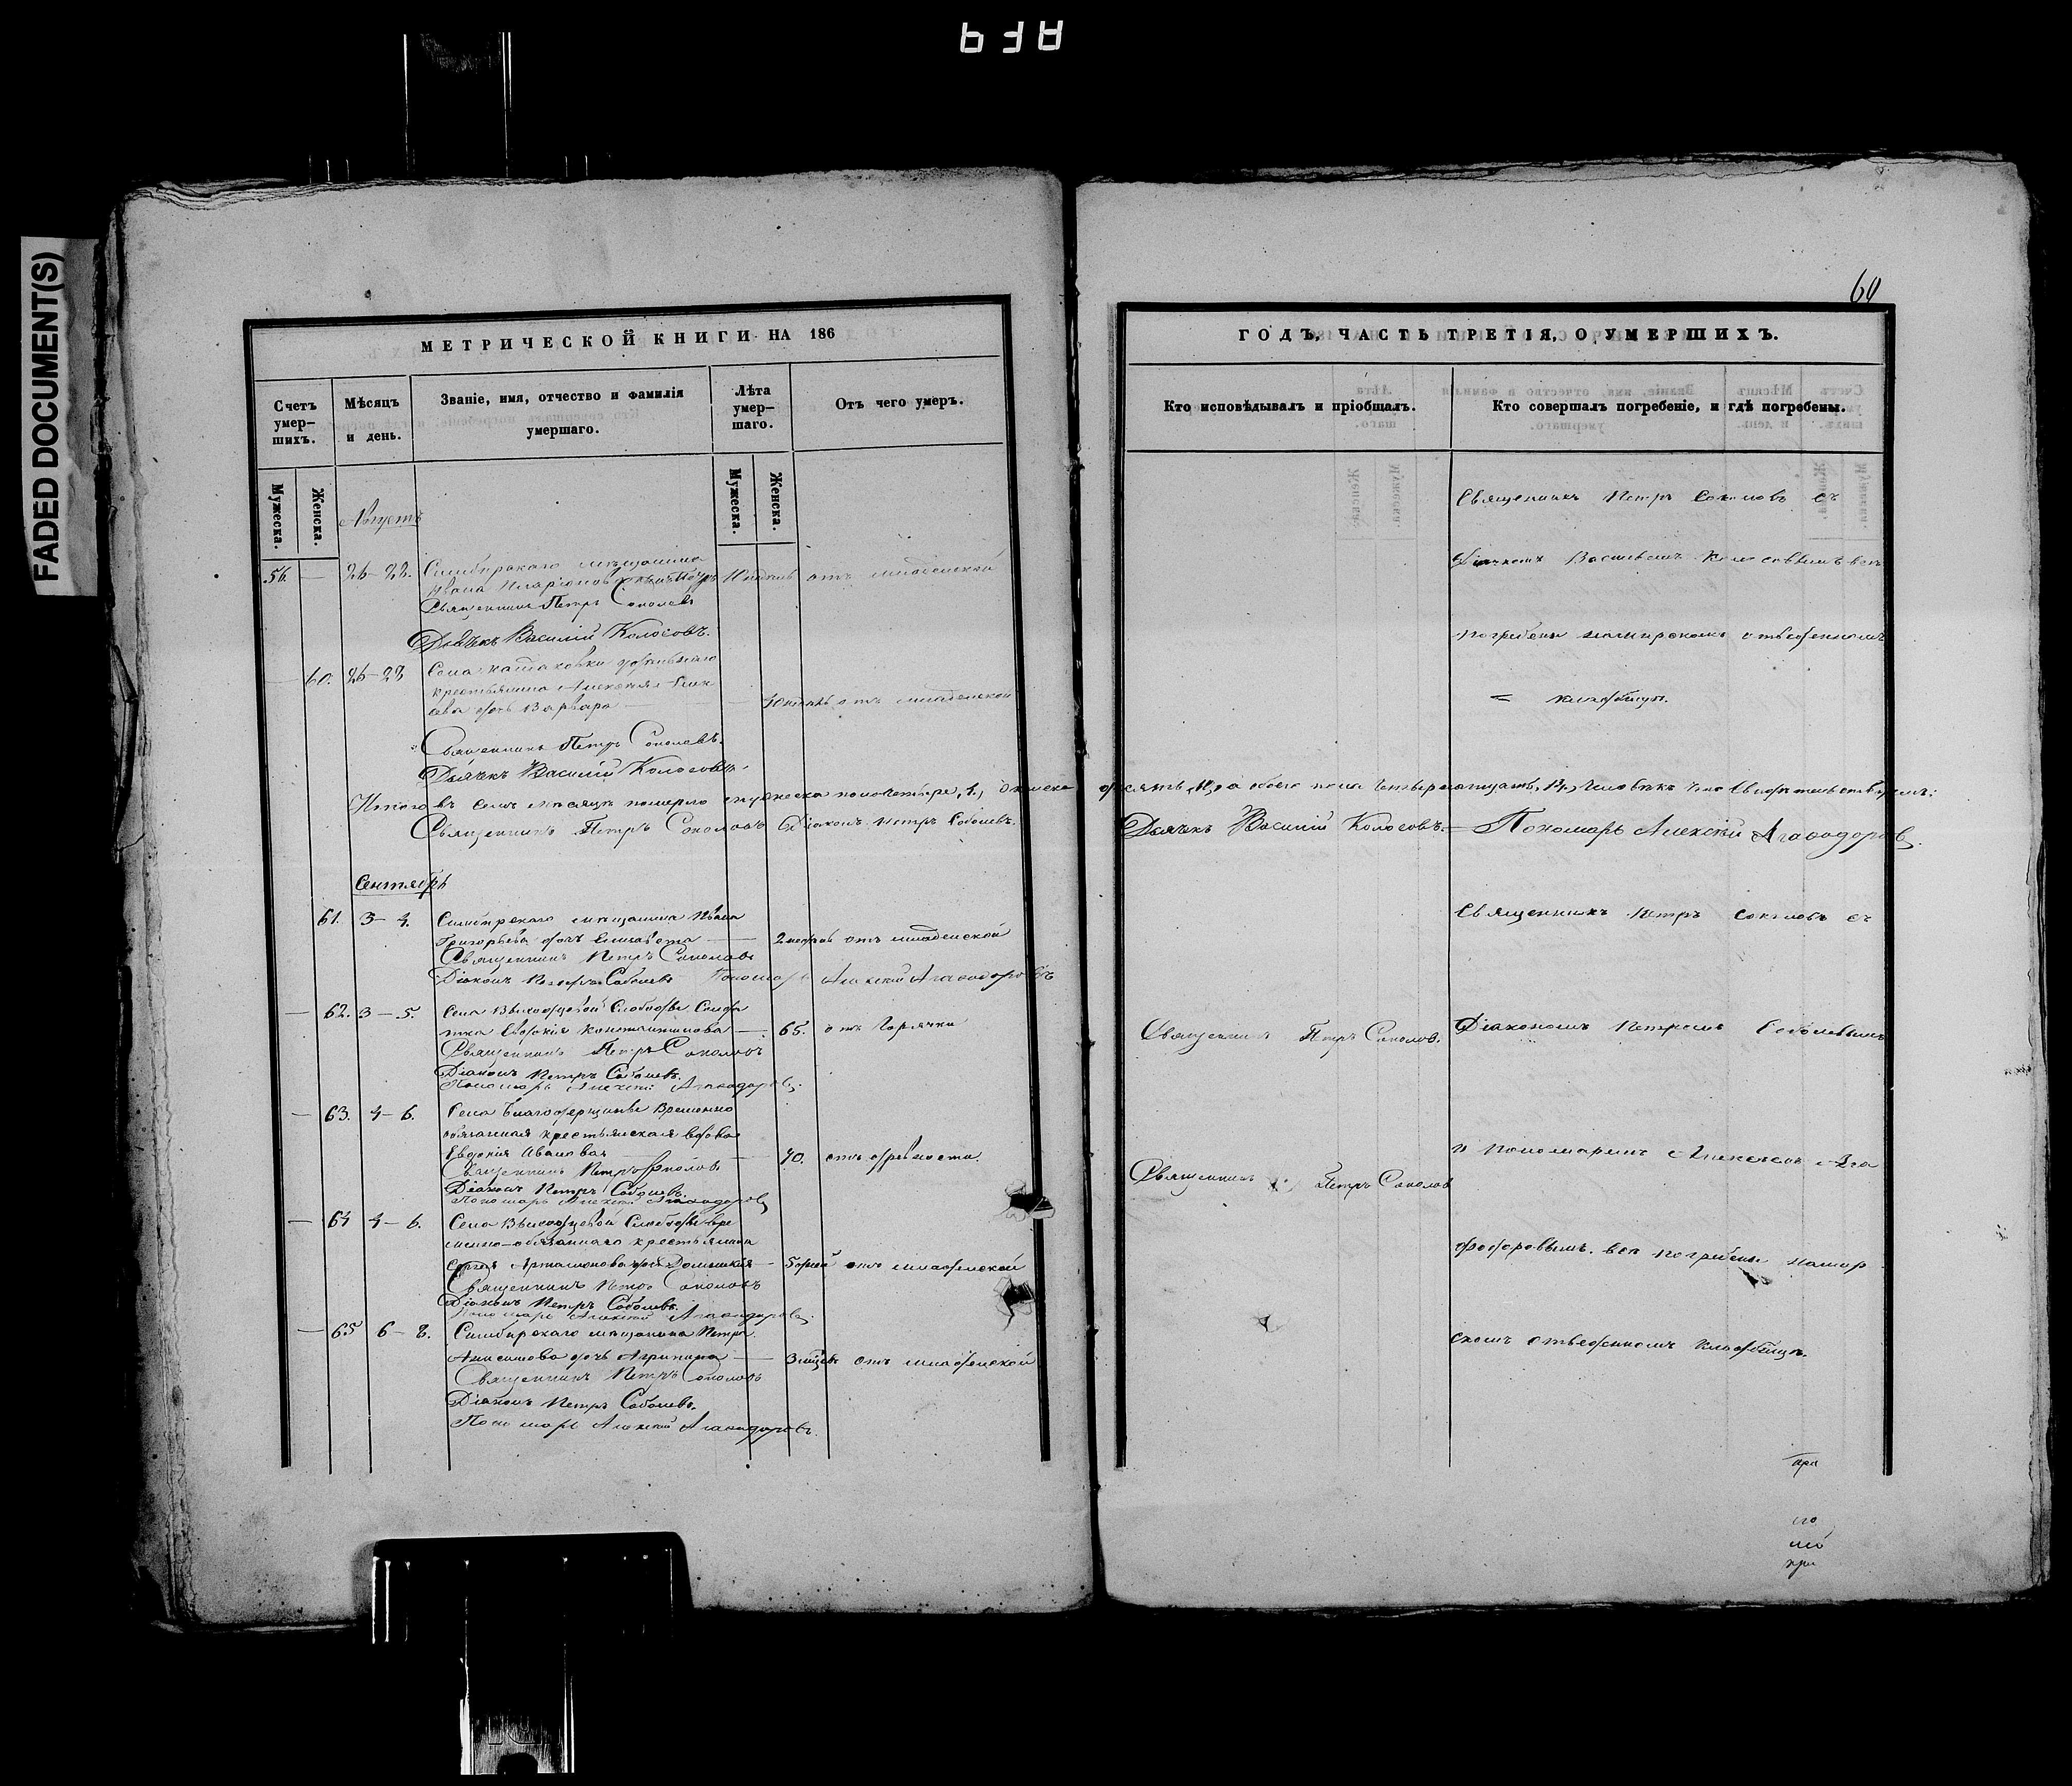 AFP
FADED DOCUMENT(S)
МЕТРИЧЕСКОЙ КНИГИ НА 186
Счетъ умер-шихъ.
Мѣсяцъ и день.
Званіе, имя, отчество и фамилія умершаго.
Лѣта умер-шаго.
Отъ чего умеръ.
Мужеска.
Женска.
Мужеска.
Женска.
Августъ
56. — 26-28. Симбирскаго мѣщанина
Ивана Иларіонова от младенской
Священникъ Петръ Соколовъ
Дьячекъ Василій Колосовъ.
60. 26-28 Села
крестьянина Алексѣя
дочь Варвара — отъ младенской
Священникъ Петръ Соколовъ.
Дьячекъ Василій Колосовъ.
Итого въ семъ мѣсяцѣ померло мужеска пола четыре, 4,
Священникъ Петръ Соколовъ Діаконъ Петръ Соболевъ.
Сентябрь
61. 3-4. Симбирскаго мѣщанина Ивана
Григорьева дочь Елизавета — 2 отъ младенской
Священникъ Петръ Соколовъ
Діаконъ Петръ Соболевъ Пономарь Алексѣй Агаѳодоровъ
— 62. 3-5. Села Слободы Солда
тка Константинова — 65. отъ горячки
Священникъ Петръ Соколовъ
Діаконъ Петръ Соболевъ.
Пономарь Алексѣй Агаѳодоровъ.
— 63. 4-6. Села Временно
обязанная крестьянская вдова
Евдокія Иванова — 70. отъ древности.
Священникъ Петръ Соколовъ
Діаконъ Петръ Соболевъ.
Пономарь Алексѣй Агаѳодоровъ
— 64 4-6. Села Слободы вре
менно-обязаннаго крестьянина
Сергѣя Артамонова дочь — 5 дней отъ младенской
Священникъ Петръ Соколовъ
Діаконъ Петръ Соболевъ.
Пономарь Алексѣй Агаѳодоровъ.
— 65 6-8. Симбирскаго мѣщанина Петра
Анисимова дочь Агрипина — 3 отъ младенской
Священникъ Петръ Соколовъ
Діаконъ Петръ Соболевъ.
Пономарь Алексѣй Агаѳодоровъ.
60
ГОДЪ, ЧАСТЬ ТРЕТІЯ, О УМЕРШИХЪ.
Кто исповѣдывалъ и пріобщалъ.
Кто совершалъ погребеніе, и гдѣ погребены.
Священникъ Петръ Соколовъ съ
Дьячкомъ Васильемъ Колосовымъ всѣ
погребены отведенномъ
= кладбищѣ.
десять, 10, а обоего пола четырнадцать, 14, человѣкъ
Дьячекъ Василій Колосовъ. = Пономарь Алексѣй Агаѳодоровъ.
Священникъ Петръ Соколовъ съ
Священникъ Петръ Соколовъ. Діакономъ Петромъ Соболевымъ
и пономаремъ Алексѣемъ Ага
Священникъ Петръ Соколовъ
ѳодоровымъ. всѣ погребены
скомъ отведенномъ кладбищѣ.
при
по
мѣ
при